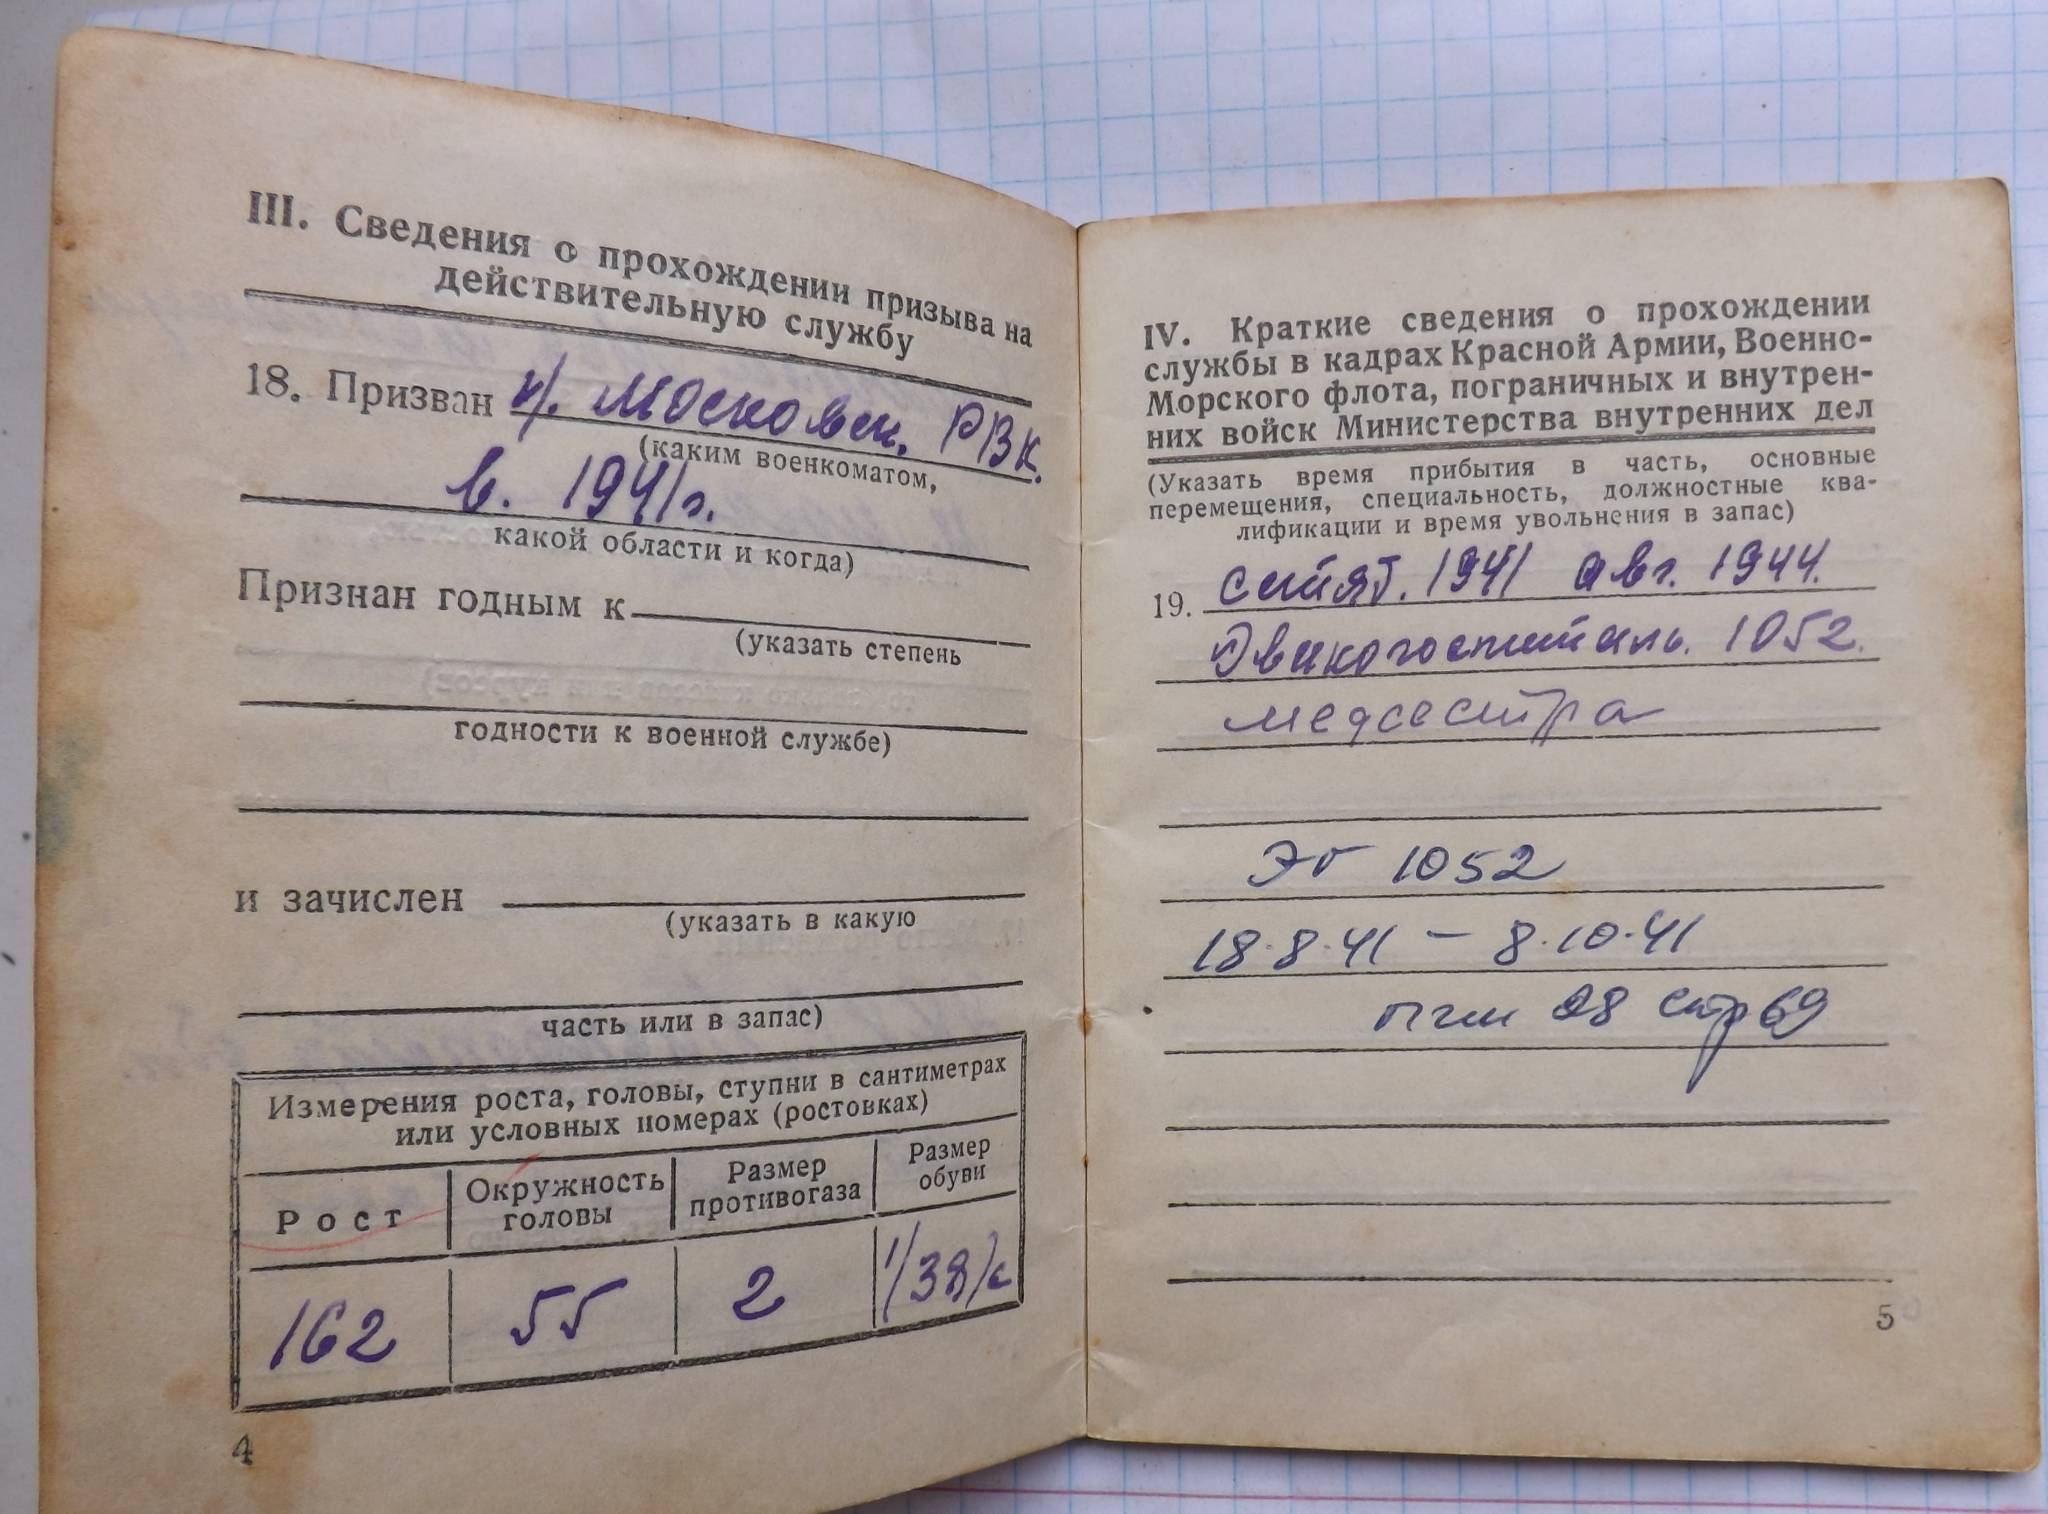 III. Сведения о прохождении призыва на
действительную службу
18. Призван Московск. РВК.
(каким военкоматом,
в. 1941г.
какой области и когда)
Признан годным к
(указать степень
годности к военной службе)
и зачислен
(указать в какую
часть или в запас)
Измерения роста, головы, ступни в сантиметрах
или условных номерах (ростовках)
Рост
Окружность
головы
Размер
противогаза
Размер
обуви
162
55
2
38
4
IV. Краткие сведения о прохождении
службы в кадрах Красной Армии, Военно-
Морского флота, пограничных и внутрен-
них войск Министерства внутренних дел
(Указать время прибытия в часть, основные
перемещения, специальность, должностные ква-
лификации и время увольнения в запас)
19. сентяб. 1941 авг. 1944.
Эвакогоспиталь. 1052.
медсестра
ЭГ 1052
18.8.41 – 8.10.41
28 стр 69
5